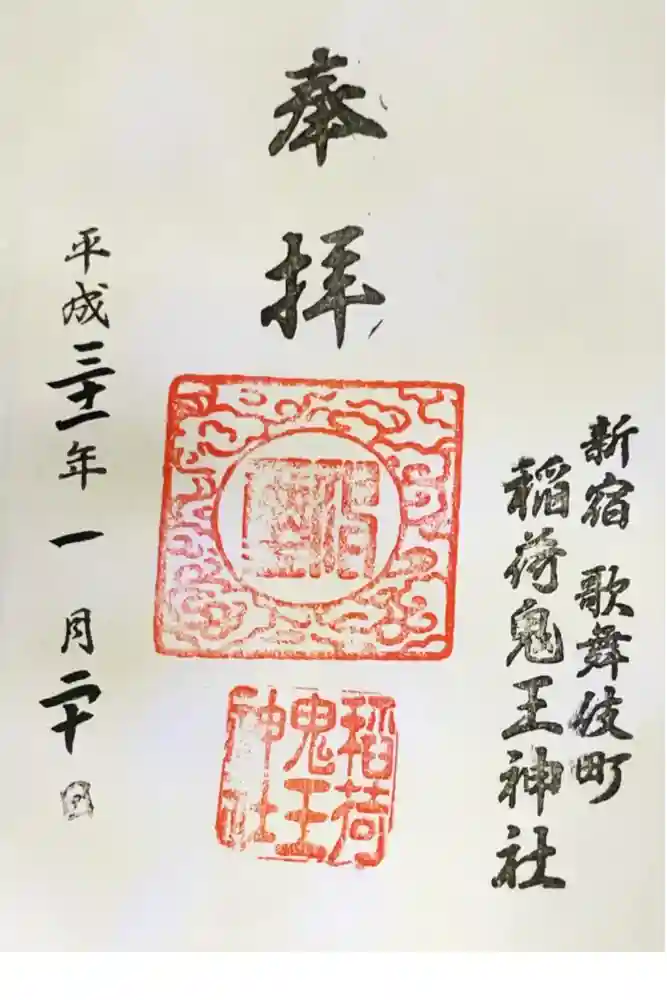 新宿 歌舞伎町
稲荷鬼王神社
奉拝
稲荷
鬼王
神社
平成三十一年一月二十日